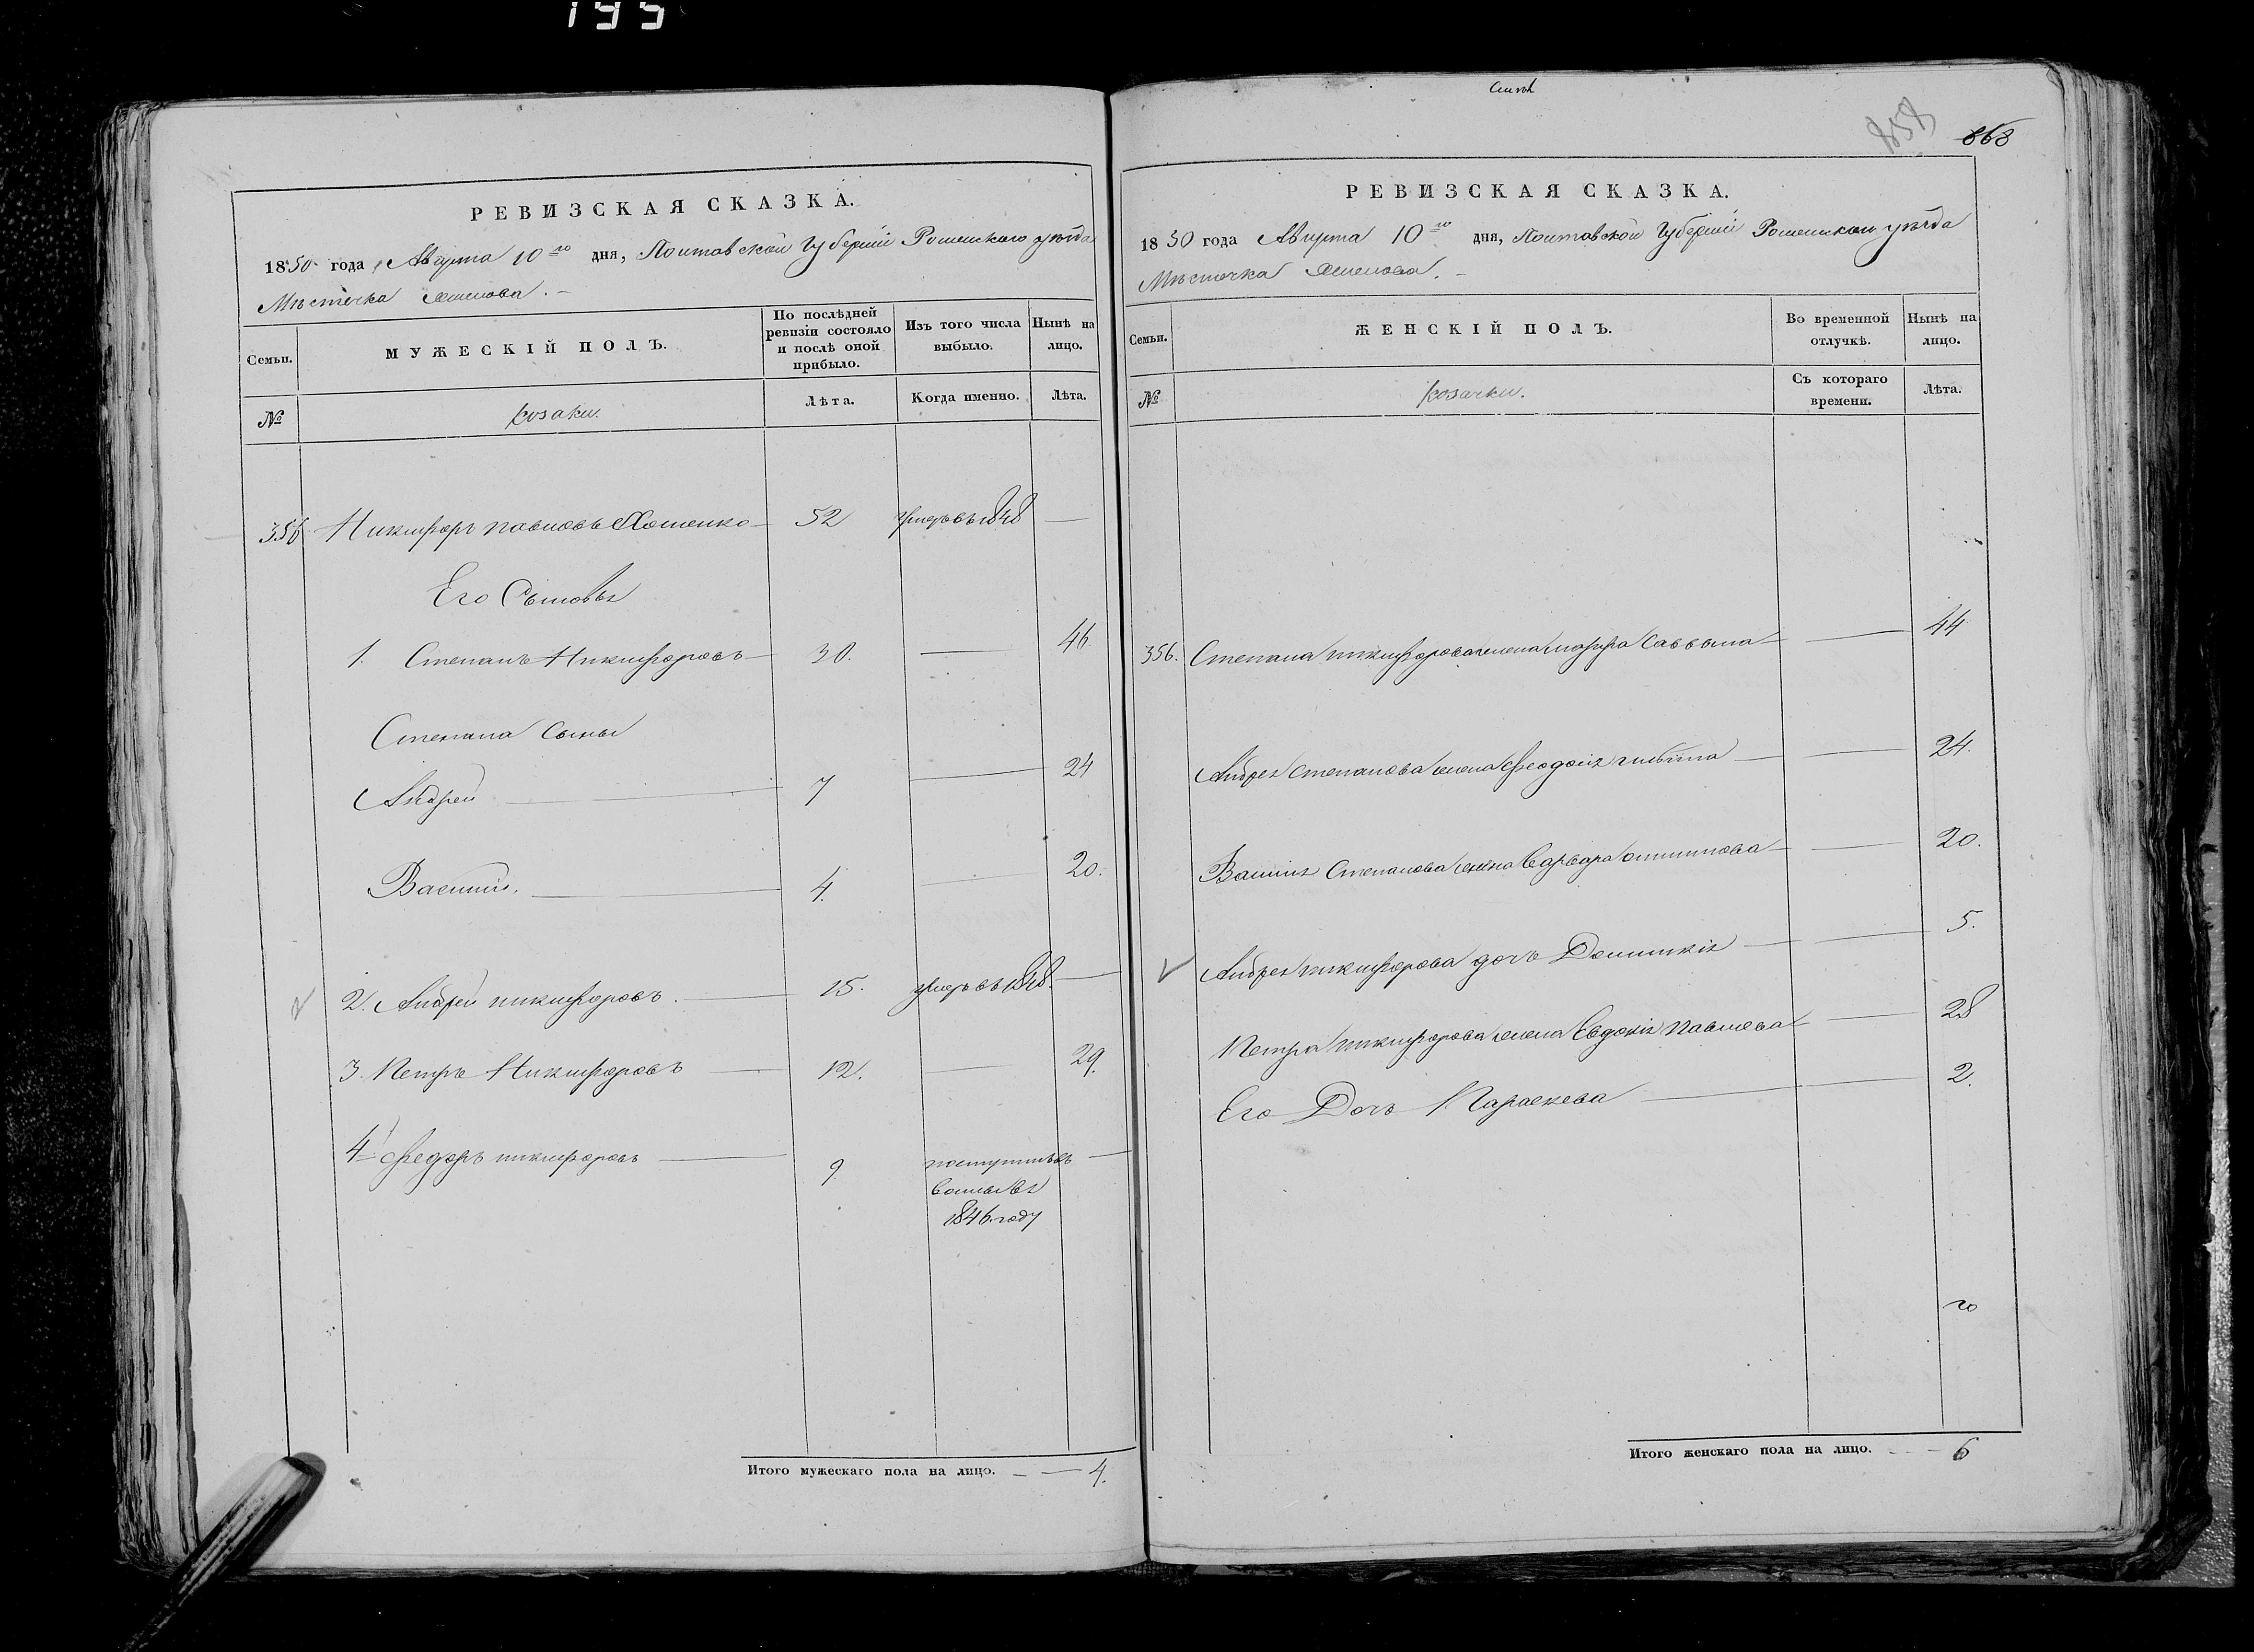 195
РЕВИЗСКАЯ СКАЗКА.
1850 года Августа 10го дня, Полтавской Губерніи Роменскаго уѣзда
Мѣстечка
Семьи.
МУЖЕСКІЙ ПОЛЪ.
По послѣдней ревизіи состояло и послѣ оной прибыло.
Изъ того числа выбыло.
Нынѣ на лицо.
№
козаки.
Лѣта.
Когда именно.
Лѣта.
356 Никифоръ Павловъ 52 умеръ въ 1848 —
Его Сыновья
1. Степанъ Никифоровъ — 30. — 46.
Степана Сыны
Андрей — 7 — 24
Василій. — 4. — 20.
2. Андрей никифоровъ. — 15. умеръ въ 1848. —
3. Петръ Никифоровъ — 12. — 29.
4 Федоръ никифоровъ — 9 поступилъ въ —
1846 году
Итого мужескаго пола на лицо. — — 4.
858
868
РЕВИЗСКАЯ СКАЗКА.
1850 года Августа 10го дня, Полтавской Губерніи Роменскаго уѣзда
Мѣстечка
Семьи.
ЖЕНСКІЙ ПОЛЪ.
Во временной отлучкѣ.
Нынѣ на лицо.
№
козачки.
Съ котораго времени.
Лѣта.
356. Степана никифорова жена Саввина — — 44
Андрея степанова жена Феодосія — — 24.
Василія Степанова жена Варвара — — 20.
Андрея никифорова дочь Домникія — — 5.
Петра никифорова жена Евдокія Павлова — — 28
Его Дочь Параскева — — 2.
Итого женскаго пола на лицо. — — 6